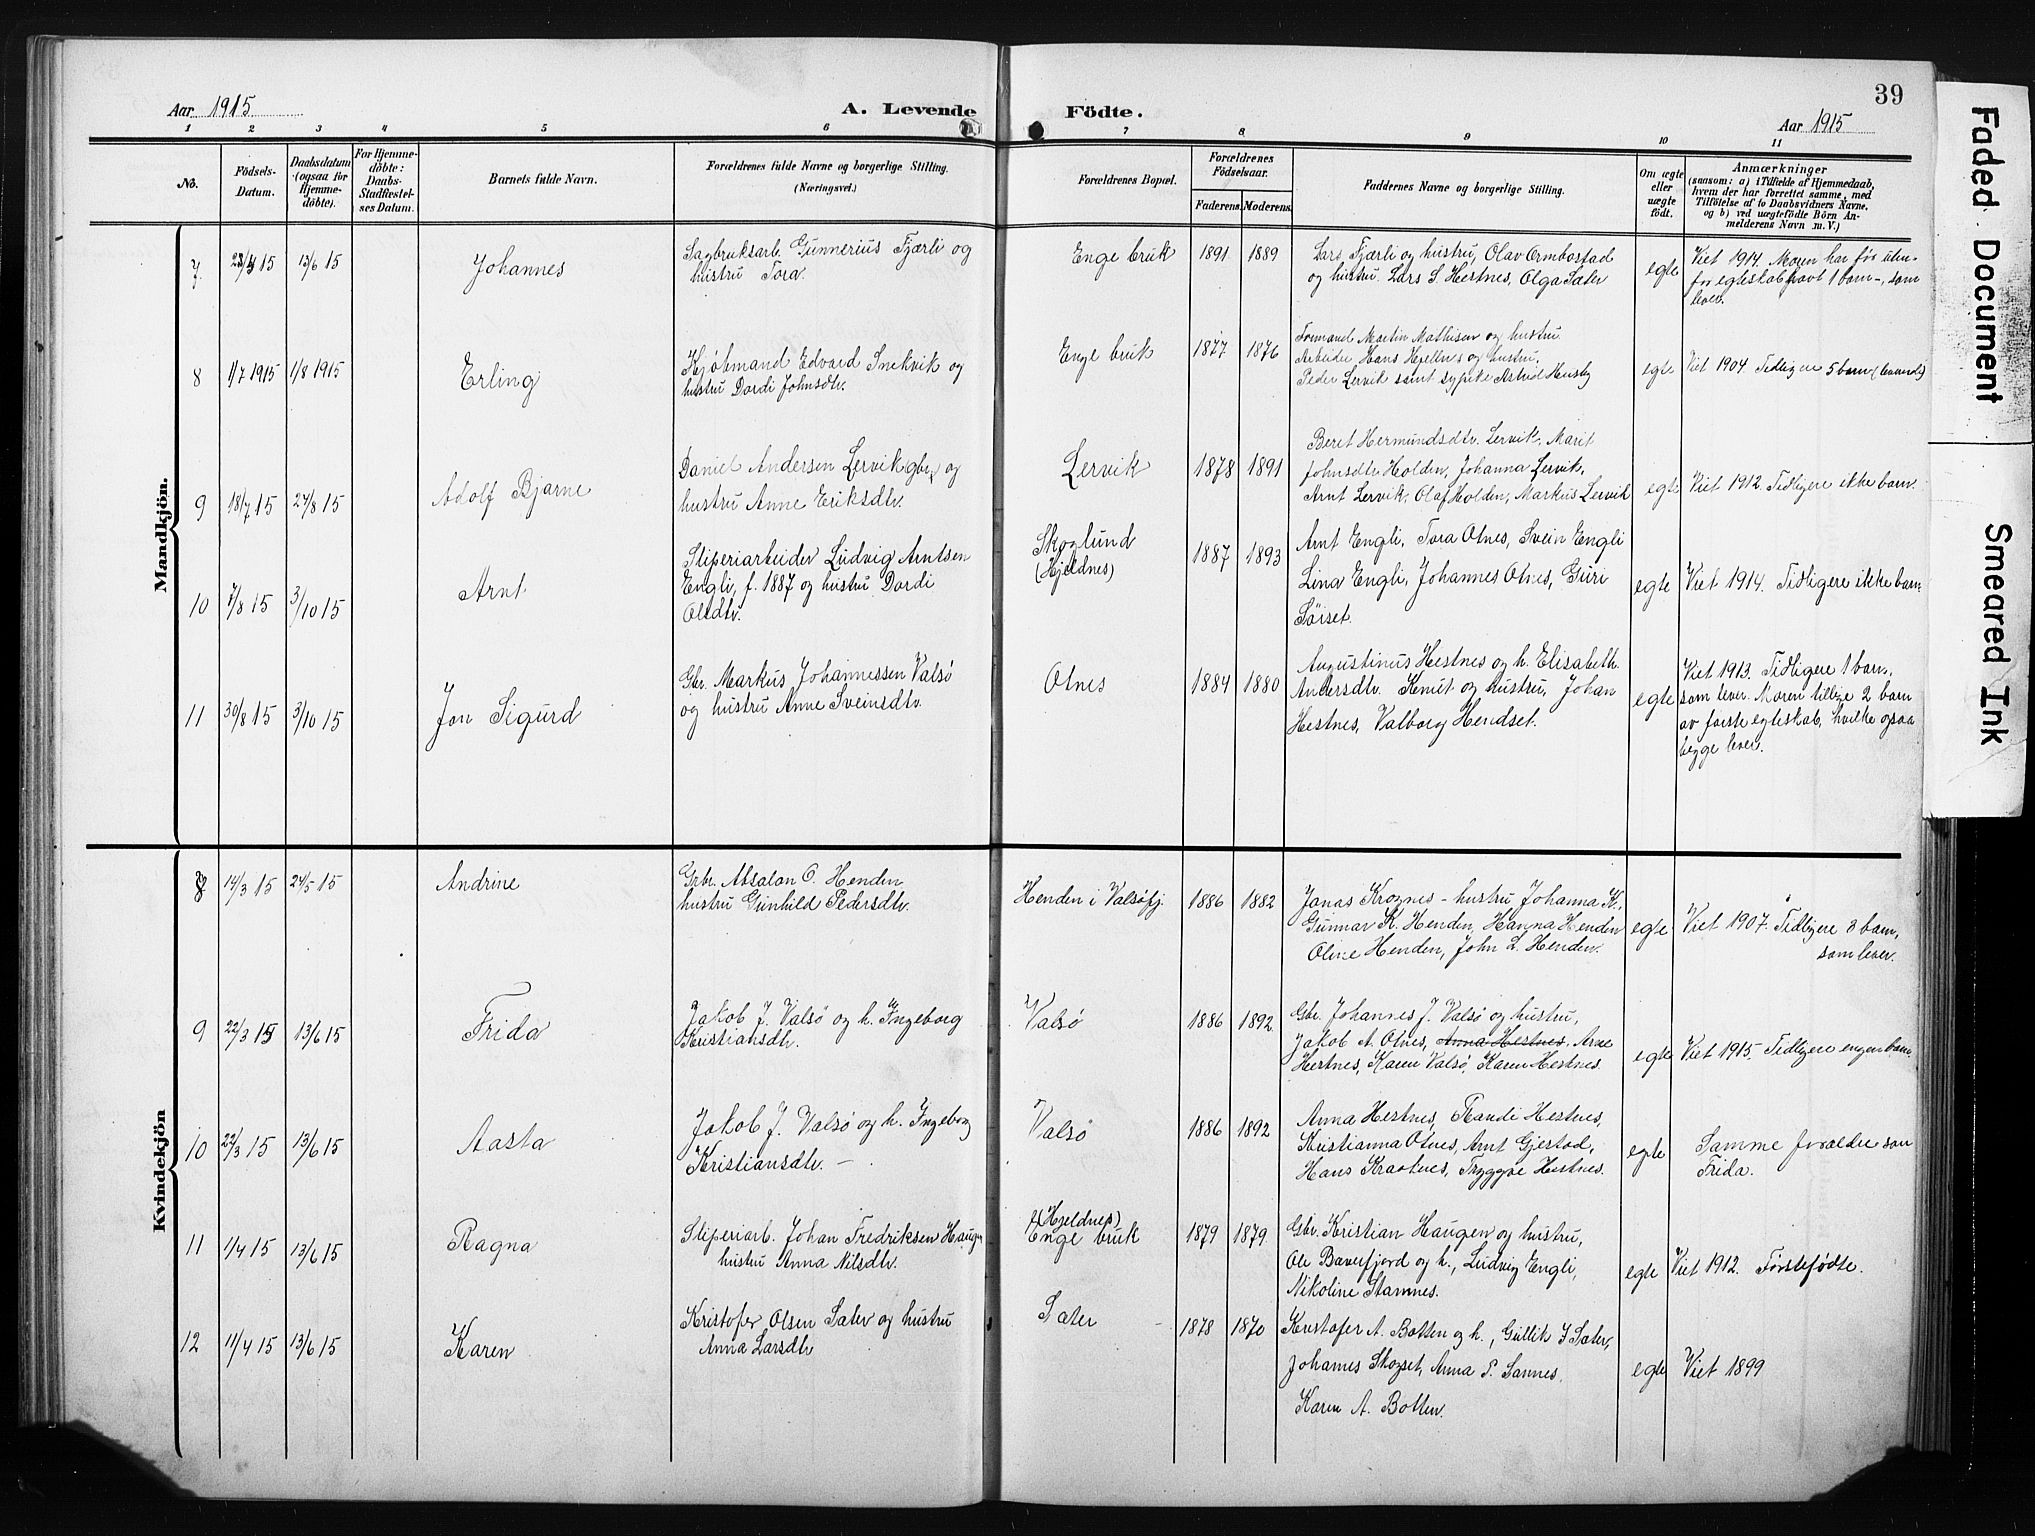 39
Aar 1915
A. Levende
Födte.
Aar 1915
1 2 3 4 5 6 7 8 9 10 11
No.
Födsels-
Datum.
Daabsdatum
(ogsaa for
Hjemme-
döbte).
For Hjemme-
döbte:
Daabs-
Stadfæstel-
ses Datum.
Barnets fulde Navn.
Forældrenes fulde Navne og borgerlige Stilling.
(Næringsvei.)
Forældrenes Bopæl.
Forældrenes
Födselsaar.
Faderens. Moderens.
Faddernes Navne og borgerlige Stilling.
Om ægte
eller
uægte
födt.
Anmærkninger
(saasom: a) i Tilfælde af Hjemmedaab,
hvem der har forrettet samme, med
Tilföielse af to Daabsvidners Navne.
og b) ved uægtefödte Börn An-
melderens Navn m. V.)
Mandkjön.
7 13/6 15 Johannes
Sagbruksarb. Gunnerius Fjærli og
hustru Tora.
Enge bruk 1891 1889
Lars Fjærli og hustru, Olav Ormbostad
og hustru. Lars S. Hestnes, Olga Sæter
egte
Viet 1914. Moren har før uten-
for egteskab havt 1 barn-, som
lever.
8 1/7 1915 1/8 1915 Erling
Kjøbmand Edvard Snekvik og
hustru Dordi Johnsdtr.
Enge bruk 1877 1876
Formand Martin Mathisen og hustru
Arbeider Hans Hjellnes og hustru,
Peder Lervik samt sypike Astrid Husby
egte
Viet 1904. Tidligere 5 barn (levende)
9 18/7 15 27/8 15 Adolf Bjarne
Daniel Andersen Lervik gbr. og
hustru Anne Eriksdtr.
Lervik 1878 1891
Beret Hermundsdtr. Lervik, Marit
Johnsdtr. Holden, Johanna Lervik,
Arnt Lervik, Olaf Holden, Markus Lervik
egte
Viet 1912. Tidligere ikke barn.
10 7/8 15 3/10 15 Arnt
Sliperiarbeider Ludvig Arntsen
Engli, f. 1887 og hustru Dordi
Olsdtr.
Skoglund
(Hjeldnes)
1887 1893
Arnt Engli, Tora Otnes, Svein Engli
Lina Engli, Johannes Otnes, Guri
Sörset.
egte
Viet 1914. Tidligere ikke barn.
11 30/8 15 3/10 15 Jon Sigurd
Gbr. Markus Johannessen Valsø
og hustru Anne Sveinsdtr.
Otnes 1884 1880
Augustinus Hestnes og h. Elisabeth
Andersdtr. Knut og hustru, Johan
Hestnes, Valborg Hendset.
egte
Viet 1913. Tidligere 1 barn,
som lever. Moren tillige 2 barn
av første egteskab, hvilke ogsaa
begge lever.
Kvindekjön
8 14/3 15 24/5 15 Andrine
Grbr. Absalon O. Henden
hustru Gunhild Pedersdtr.
Henden i Valsøfj. 1886 1882
Jonas Krognes - hustru Johanna K.,
Gunnar K. Henden, Hanna Henden
Oline Henden, John L. Henden.
egte
Viet 1907. Tidligere 3 barn,
som lever.
9 22/3 15 13/6 15 Frida
Jakob J. Valsø og h. Ingeborg
Kristiansdtr.
Valsø 1886 1892
Gbr. Johannes J. Valsø og hustru,
Jakob A. Otnes, Anna Hestnes, Arne
Hestnes, Karen Valsø, Karen Hestnes.
egte
Viet 1915. Tidligere engen barn.
10 22/3 15 13/6 15 Aasta
Jakob J. Valsø og h. Ingeborg
Kristiansdtr. -
Valsø 1886 1892
Anna Hestnes, Randi Hestnes,
Kristianna Otnes, Arnt Gjestad,
Hans Kraotnes, Tryggve Hestnes.
egte
Samme forældre som
Frida.
11 1/4 15 13/6 15 Ragna
Sliperiarb. Johan Fredriksen Haugen
hustru Anna Nilsdtr.
(Hjeldnes)
Enge bruk
1879 1879
Gbr. Kristian Haugen og hustru,
Ole Bæverfjord og h., Ludvig Engli,
Nikoline Stamnes.
egte
Viet 1912. Førstefødte.
12 11/4 15 13/6 15 Karen
Kristofer Olsen Sæter og hustru
Anna Larsdtr
Sæter 1878 1870
Kristofer A. Botten og h., Gullik I Sæter,
Johannes Skogset, Anna P. Sannes.
Karen A. Botten.
egte
Viet 1899
Faded Document
Smeared Ink